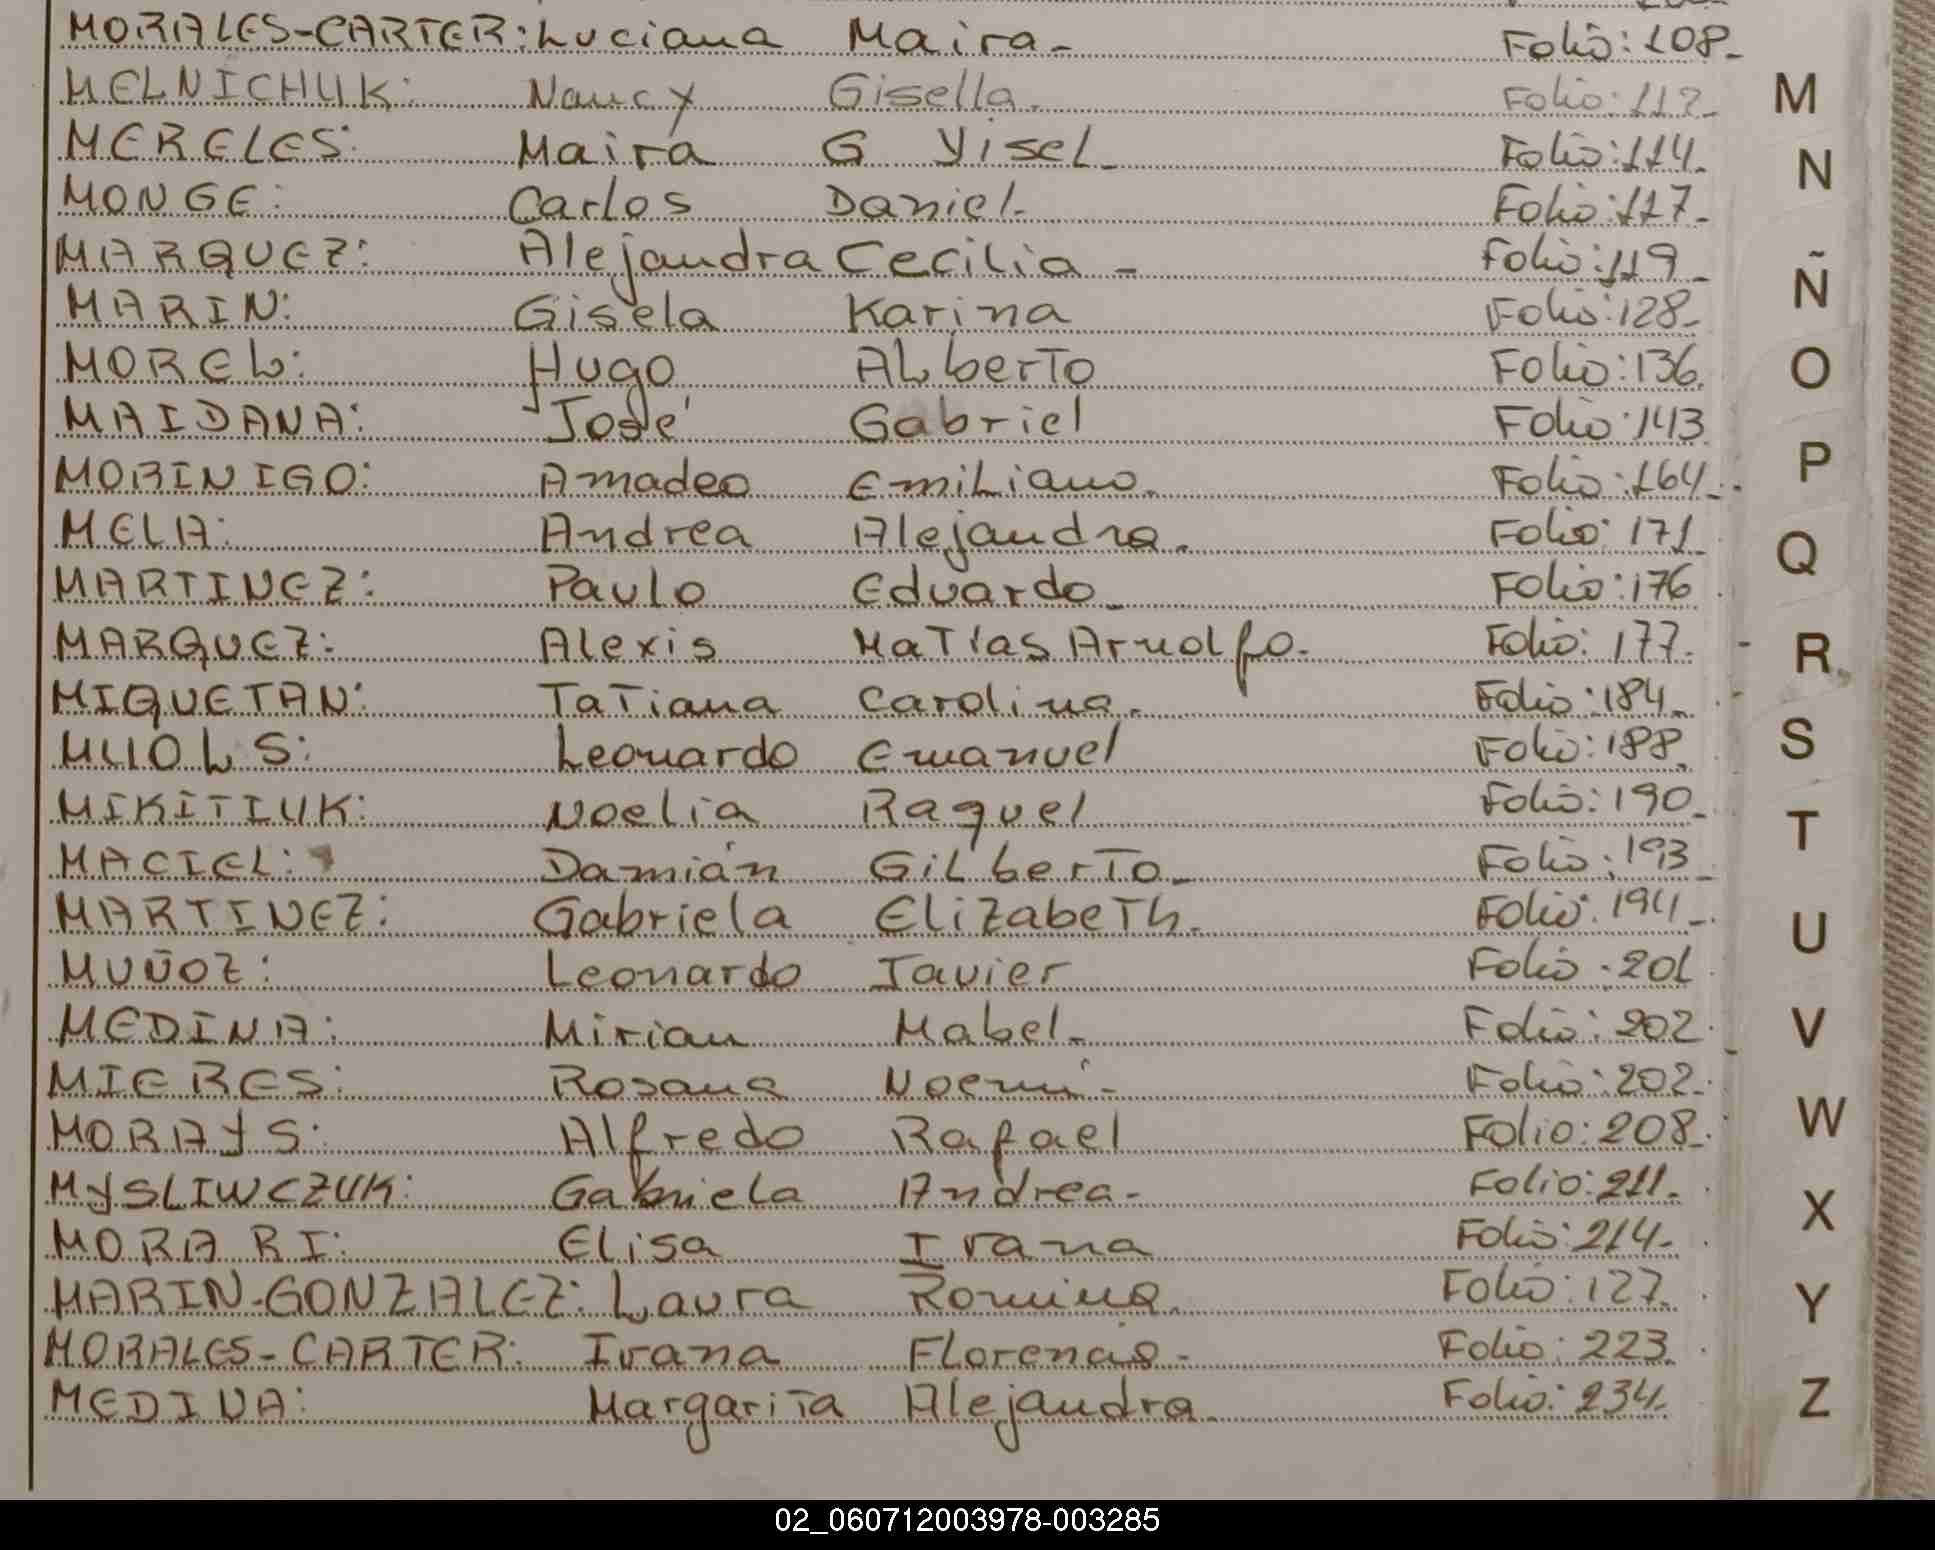 MORALES-CARTER: Luciana Maira- Folio: 108-
MELNICHUK: Nancy Gisella. Folio: 112-
MERELES: Maira G Yisel- Folio: 114-
MONGE: Carlos Daniel- Folio: 117-
MARQUEZ: Alejandra Cecilia - Folio: 119-
MARIN: Gisela Karina Folio: 128-
MOREL: Hugo ALberTo Folio: 136.
MAIDANA: José Gabriel Folio: 143
MORINIGO: Amadeo EmiLiano. Folio: 164-
MELA: Andrea Alejandra. Folio: 171-
MARTINEZ: Paulo Eduardo- Folio: 176
MARQUEZ: Alexis MaTías Arnolfo- Folio: 177-
MIQUETAN: TaTiana Carolina. Folio: 184-
MUOLS: Leonardo Emanuel Folio: 188.
MIKITIUK: Noelia Raquel Folio: 190-
MACIEL: Damián GiLberTo- Folio: 193-
MARTINEZ: Gabriela ElizabeTh. Folio: 194-
MUÑOZ: Leonardo Javier Folio: 201
MEDINA: Mirian Mabel- Folio: 202
MIERES: Rosana Noemí- Folio: 202-
MORAYS: Alfredo Rafael Folio: 208-
MYSLIWCZUK: Gabriela Andrea- Folio: 211-
MORARI: Elisa Ivana Folio: 214-
MARIN-GONZALEZ: Laura Romina. Folio: 127-
MORALES-CARTER: Ivana Florencia- Folio: 223-
MEDINA: MargariTa Alejandra. Folio: 234-
M
N
Ñ
O
P
Q
R
S
T
U
V
W
X
Y
Z
02_060712003978-003285